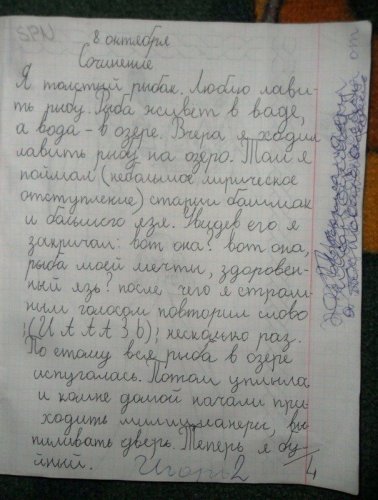 SPN
8 октября
Сочинение
Я толстый рыбак. Люблю лави-
ть рыбу. Рыба живёт в ваде,
а вода - в озере. Вчера я ходил
лавить рыбу на озеро. Там я
поймал (небальшое лирическое
отступление) старый башмак
и бальшого язя. Увидев его я
закричал: вот она? вот она,
рыба моей мечты, здоровен-
ный язь? после чего я страш-
ным голосом повторил слово
(ЙАААЗЬ) несколько раз.
По етому вся рыба в озере
испугалась. Потом уплыла
и комне дамой начали при-
ходить миллиианеры, вы
пиливать дверь. Теперь я бу
йный.
Игорь 2
4
от